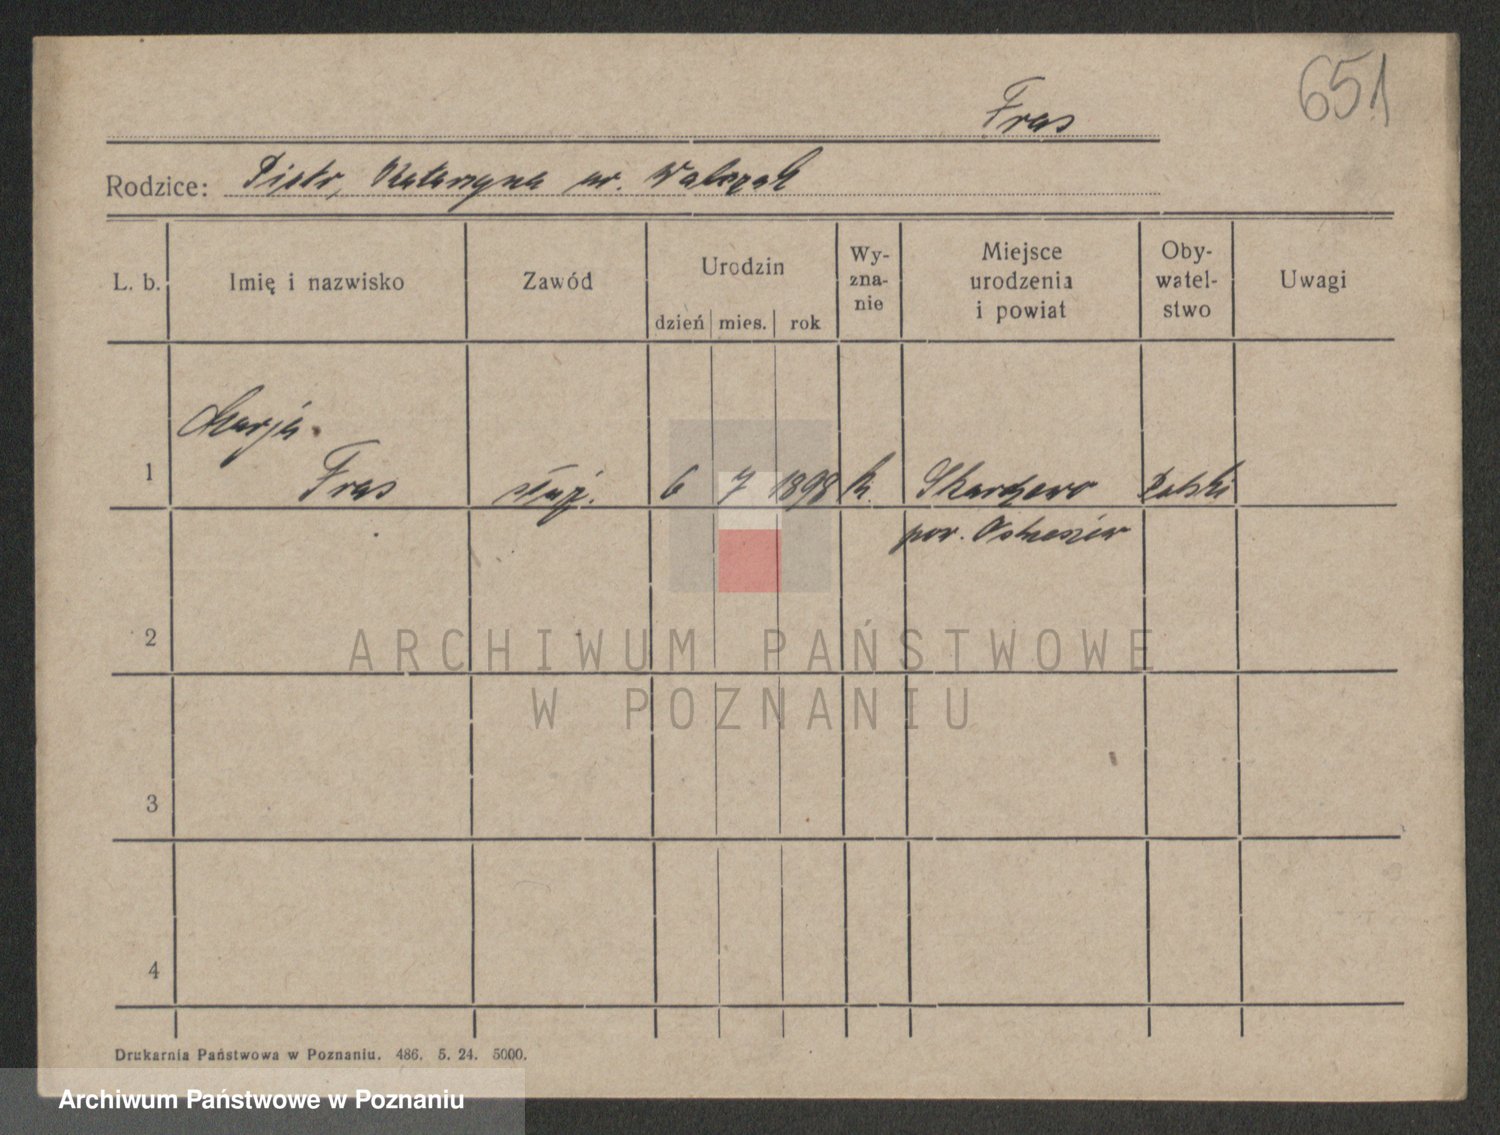 651
Fras
Rodzice: Piotr, Katarzyna ur. Walczak
L. b.
Imię i nazwisko
Zawód
Urodzin
dzień
mies.
rok
Wy-
zna-
nie
Miejsce
urodzenia
i powiat
Oby-
watel-
stwo
Uwagi
Marja
1 Fras służ. 6 7 1898 k. Polski
pow.
2
3
4
ARCHIWUM PAŃSTWOWE
W POZNANIU
Drukarnia Państwowa w Poznaniu. 486. 5. 24. 5000.
Archiwum Państwowe w Poznaniu